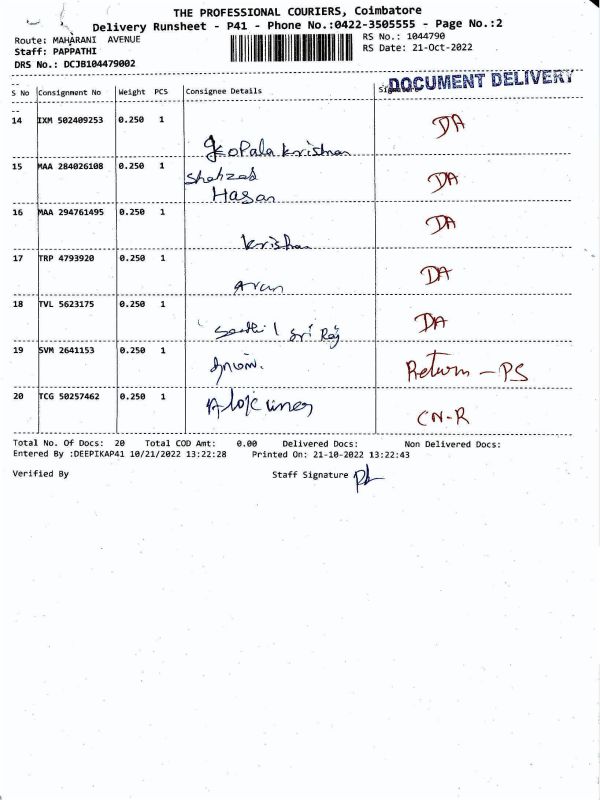 THE PROFESSIONAL COURIERS, Coimbatore
Delivery Runsheet - P41 - Phone No.:0422-3505555 - Page No.:2
Route: MAHARANI AVENUE
RS No.: 1044790
Staff: PAPPATHI
RS Date: 21-Oct-2022
DRS No.: DCJB104479002
DOCUMENT DELIVERY
S No Consignment No Weight PCS Consignee Details Signature
14 IXM 502409253 0.250 1 DA
Gopala krishnan
15 MAA 284026108 0.250 1 Shahzad DA
Hasan
16 MAA 294761495 0.250 1 DA
krishan
17 TRP 4793920 0.250 1 DA
Arun
18 TVL 5623175 0.250 1 DA
Senthil Sri Raj
19 SVM 2641153 0.250 1 Return - PS
20 TCG 50257462 0.250 1 CN-R
Total No. Of Docs: 20 Total COD Amt: 0.00 Delivered Docs: Non Delivered Docs:
Entered By :DEEPIKAP41 10/21/2022 13:22:28 Printed On: 21-10-2022 13:22:43
Verified By Staff Signature